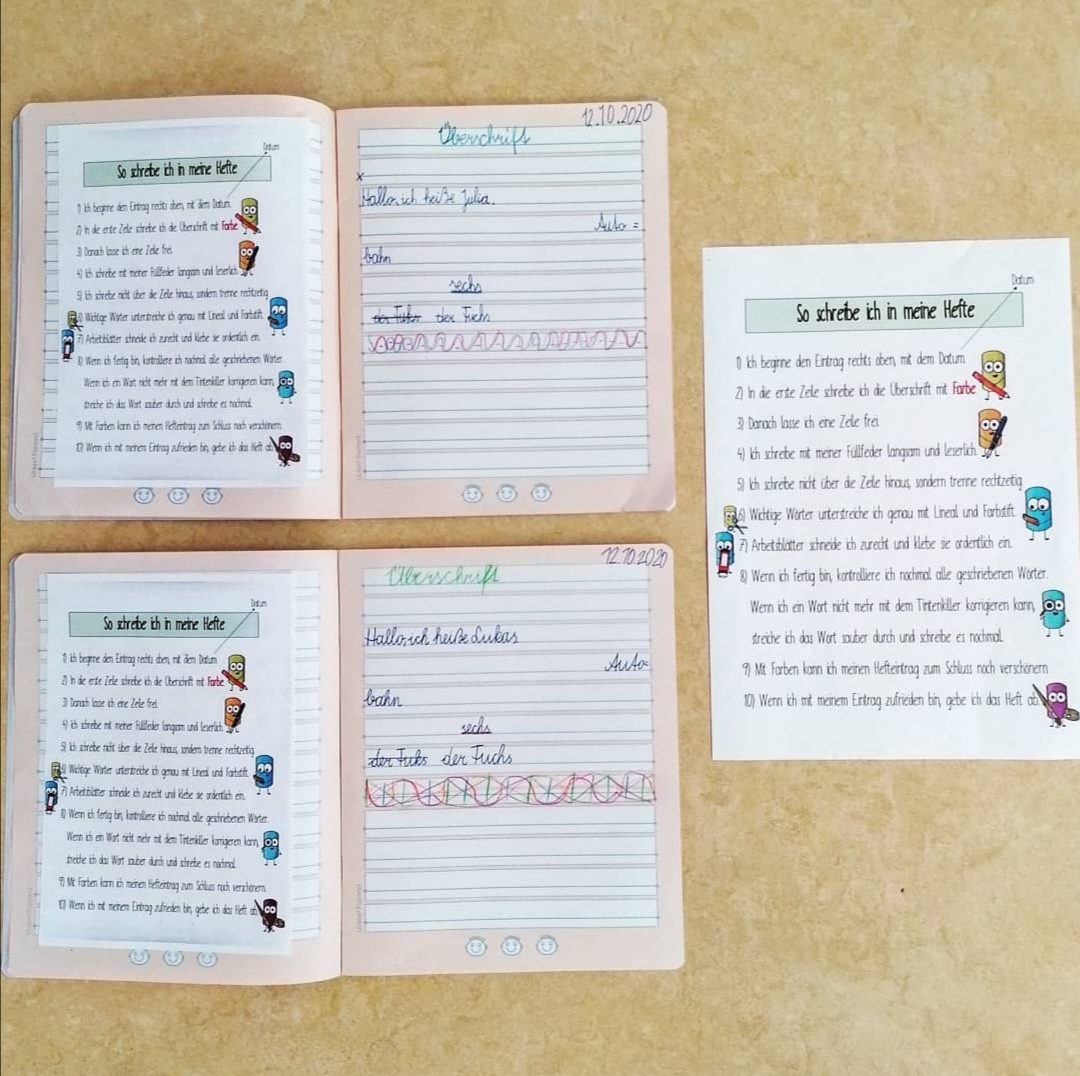 Datum
So schreibe ich in meine Hefte
1) Ich beginne den Eintrag rechts oben, mit dem Datum.
2) In die erste Zeile schreibe ich die Überschrift mit Farbe
3) Danach lasse ich eine Zeile frei.
4) Ich schreibe mit meiner Füllfeder langsam und leserlich.
5) Ich schreibe nicht über die Zeile hinaus, sondern trenne rechtzeitig.
6) Wichtige Wörter unterstreiche ich genau mit Lineal und Farbstift.
7) Arbeitsblätter schneide ich zurecht und klebe sie ordentlich ein.
8) Wenn ich fertig bin, kontrolliere ich nochmal alle geschriebenen Wörter.
Wenn ich ein Wort nicht mehr mit dem Tintenkiller korrigieren kann,
streiche ich das Wort sauber durch und schreibe es nochmal.
9) Mit Farben kann ich meinen Hefteintrag zum Schluss noch verschönern.
10) Wenn ich mit meinem Eintrag zufrieden bin, gebe ich das Heft ab.
12.10.2020
Überschrift
x
Hallo, ich heiße Julia.
Auto=
bahn
sechs
der Fuks der Fuchs
Datum
So schreibe ich in meine Hefte
1) Ich beginne den Eintrag rechts oben, mit dem Datum.
2) In die erste Zeile schreibe ich die Überschrift mit Farbe
3) Danach lasse ich eine Zeile frei.
4) Ich schreibe mit meiner Füllfeder langsam und leserlich.
5) Ich schreibe nicht über die Zeile hinaus, sondern trenne rechtzeitig.
6) Wichtige Wörter unterstreiche ich genau mit Lineal und Farbstift.
7) Arbeitsblätter schneide ich zurecht und klebe sie ordentlich ein.
8) Wenn ich fertig bin, kontrolliere ich nochmal alle geschriebenen Wörter.
Wenn ich ein Wort nicht mehr mit dem Tintenkiller korrigieren kann,
streiche ich das Wort sauber durch und schreibe es nochmal.
9) Mit Farben kann ich meinen Hefteintrag zum Schluss noch verschönern.
10) Wenn ich mit meinem Eintrag zufrieden bin, gebe ich das Heft ab.
12.10.2020
Überschrift
Hallo, ich heiße Lukas
Auto=
bahn
sechs
der Fuks der Fuchs
Datum
So schreibe ich in meine Hefte
1) Ich beginne den Eintrag rechts oben, mit dem Datum.
2) In die erste Zeile schreibe ich die Überschrift mit Farbe
3) Danach lasse ich eine Zeile frei.
4) Ich schreibe mit meiner Füllfeder langsam und leserlich.
5) Ich schreibe nicht über die Zeile hinaus, sondern trenne rechtzeitig.
6) Wichtige Wörter unterstreiche ich genau mit Lineal und Farbstift.
7) Arbeitsblätter schneide ich zurecht und klebe sie ordentlich ein.
8) Wenn ich fertig bin, kontrolliere ich nochmal alle geschriebenen Wörter.
Wenn ich ein Wort nicht mehr mit dem Tintenkiller korrigieren kann,
streiche ich das Wort sauber durch und schreibe es nochmal.
9) Mit Farben kann ich meinen Hefteintrag zum Schluss noch verschönern.
10) Wenn ich mit meinem Eintrag zufrieden bin, gebe ich das Heft ab.